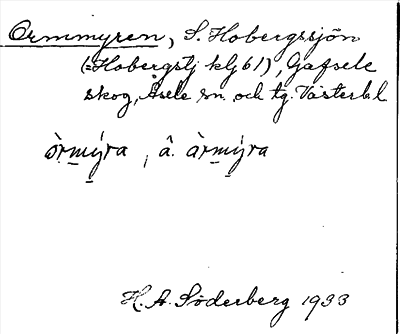 Ormmyren, S. Hobergssjön
(=Hobergstj klj 61), Gafsele
skog, Åsele sn. och tg. Västerbl
òrm̱ýra, â. àrm̱ýra
H. A. Söderberg 1933